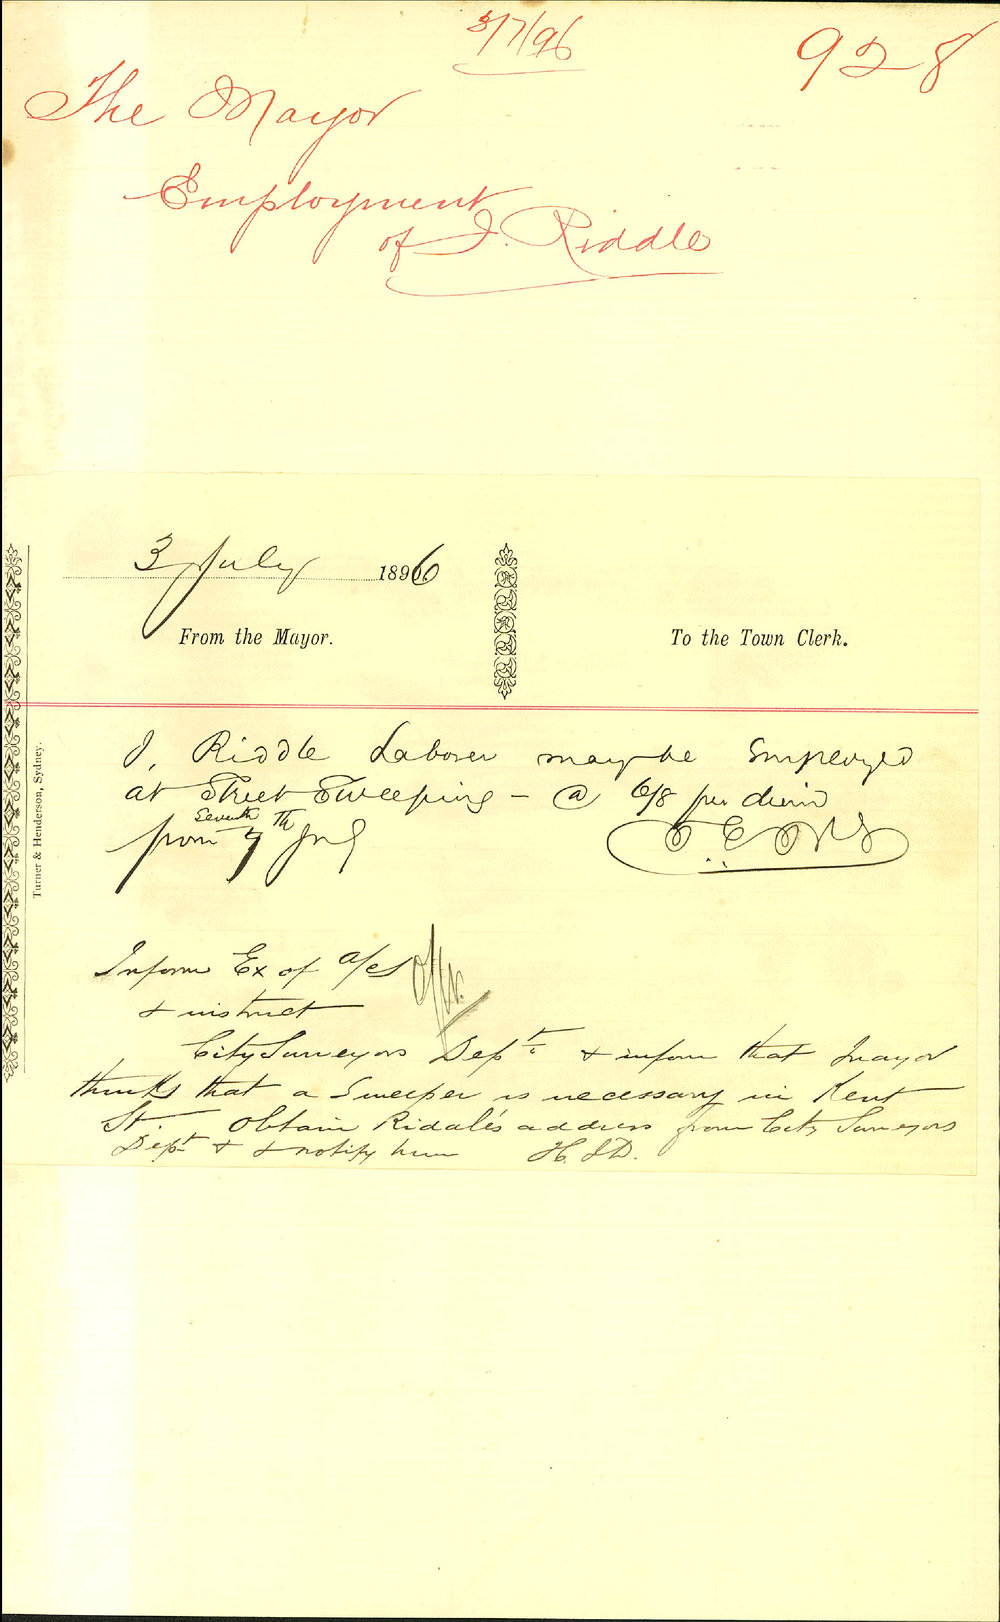 3/7/96
928
The Mayor
Employment
of J. Riddle
3 July 1896
From the Mayor.
To the Town Clerk.
J. Riddle Laborer may be Employed
at Street Sweeping - @ 6/8 per diem
Seventh Th
from 7 July
Inform Ex of a/cs
& instruct
City Surveyors Dept & inform that Mayor
thinks that a Sweeper is necessary in Kent
St. Obtain Riddle's address from City Surveyors
Dept & & notify him H. J D.
Turner & Henderson, Sydney.